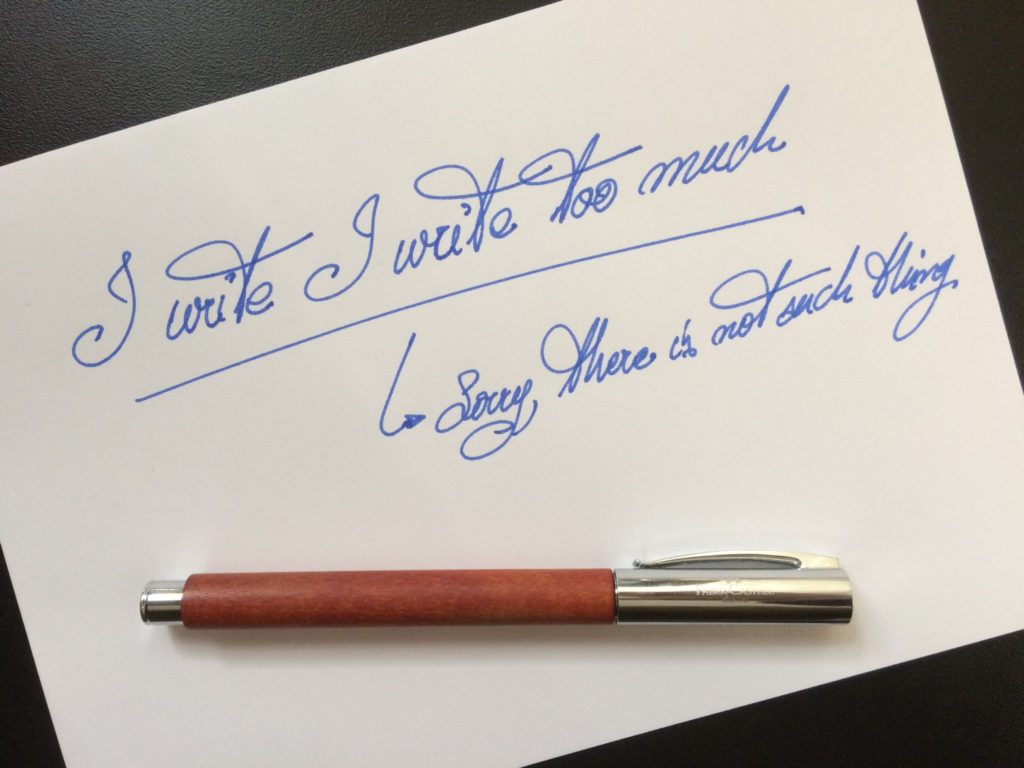 I write I write too much
Sorry, there is not such thing
FABER-CASTELL